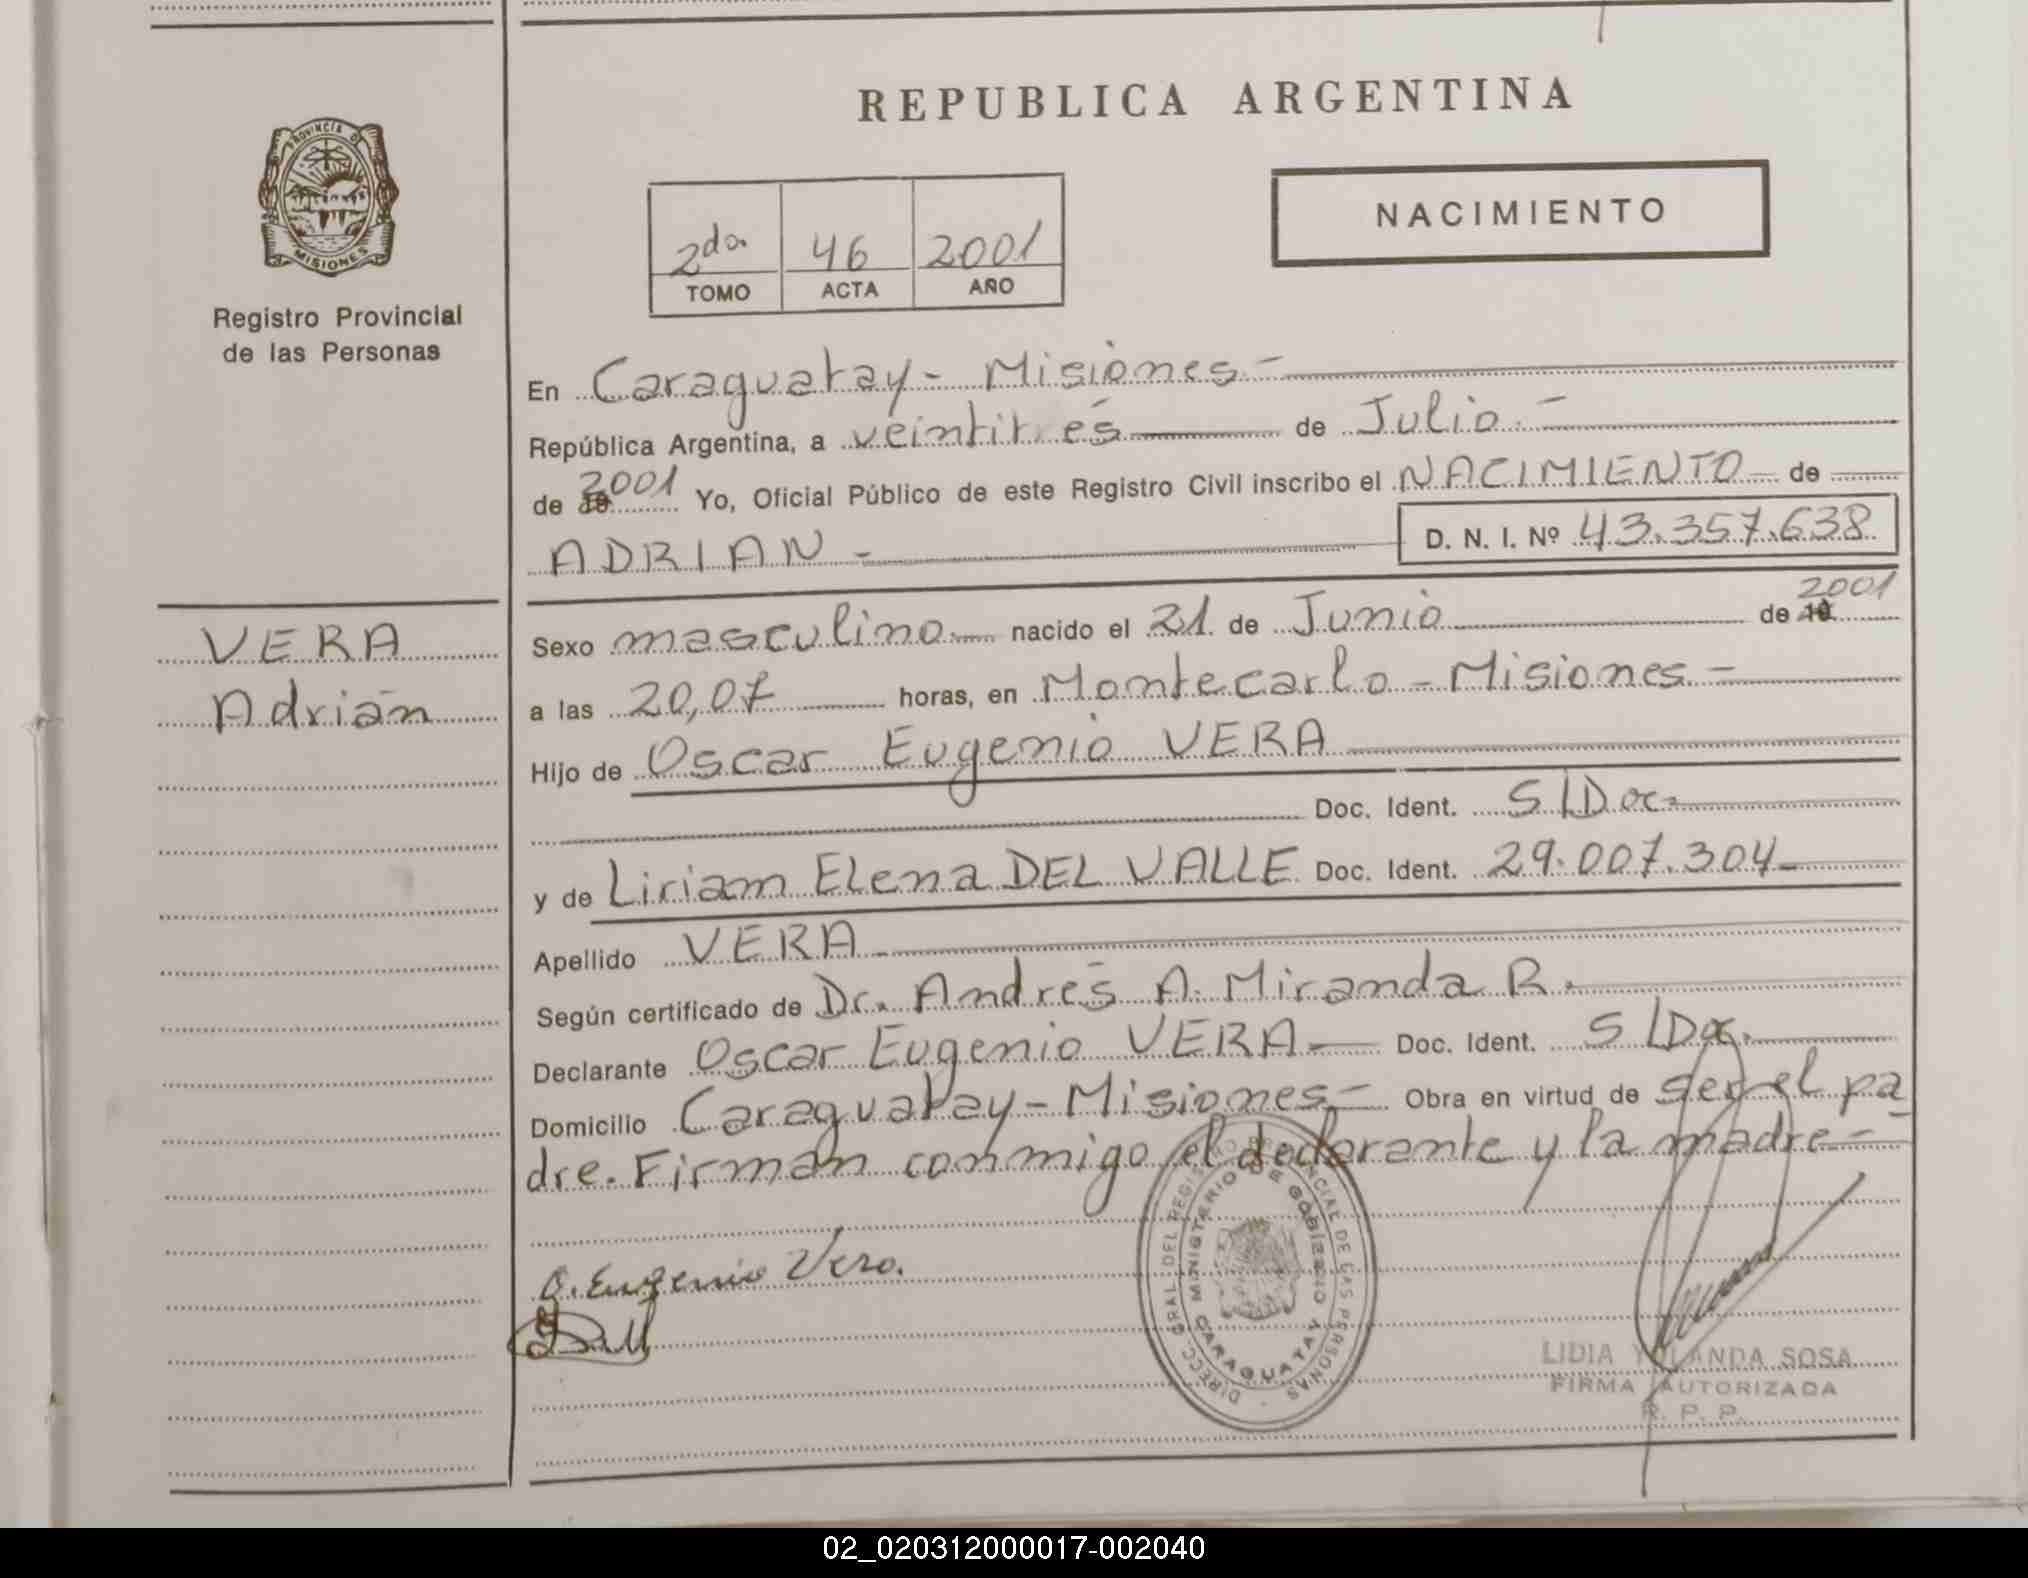 REPUBLICA ARGENTINA
PROVINCIA DE
MISIONES
Registro Provincial
de las Personas
NACIMIENTO
2da. 46 2001
TOMO ACTA AÑO
En Caraguatay - Misiones -
República Argentina, a veintitrés de Julio. -
de 2001 Yo, Oficial Público de este Registro Civil inscribo el NACIMIENTO de
ADRIAN - D. N. I. Nº 43.357.638
VERA
Adrián
Sexo masculino nacido el 21 de Junio de 2001
a las 20,07 horas, en Montecarlo - Misiones -
Hijo de Oscar Eugenio VERA
Doc. Ident. S/Doc-
y de Liriam Elena DEL VALLE Doc. Ident. 29.007.304-
Apellido VERA
Según certificado de Dr. Andrés A. Miranda R.
Declarante Oscar Eugenio VERA Doc. Ident. S/Doc.
Domicilio Caraguatay - Misiones - Obra en virtud de ser el pa
dre. Firman conmigo el declarante y la madre -
O. Eugenio Vera.
DIRECC. GRAL. DEL REGISTRO PROVINCIAL DE LAS PERSONAS
MINISTERIO DE GOBIERNO
CARAGUATAY
LIDIA YOLANDA SOSA
FIRMA AUTORIZADA
R. P. P.
02_020312000017-002040